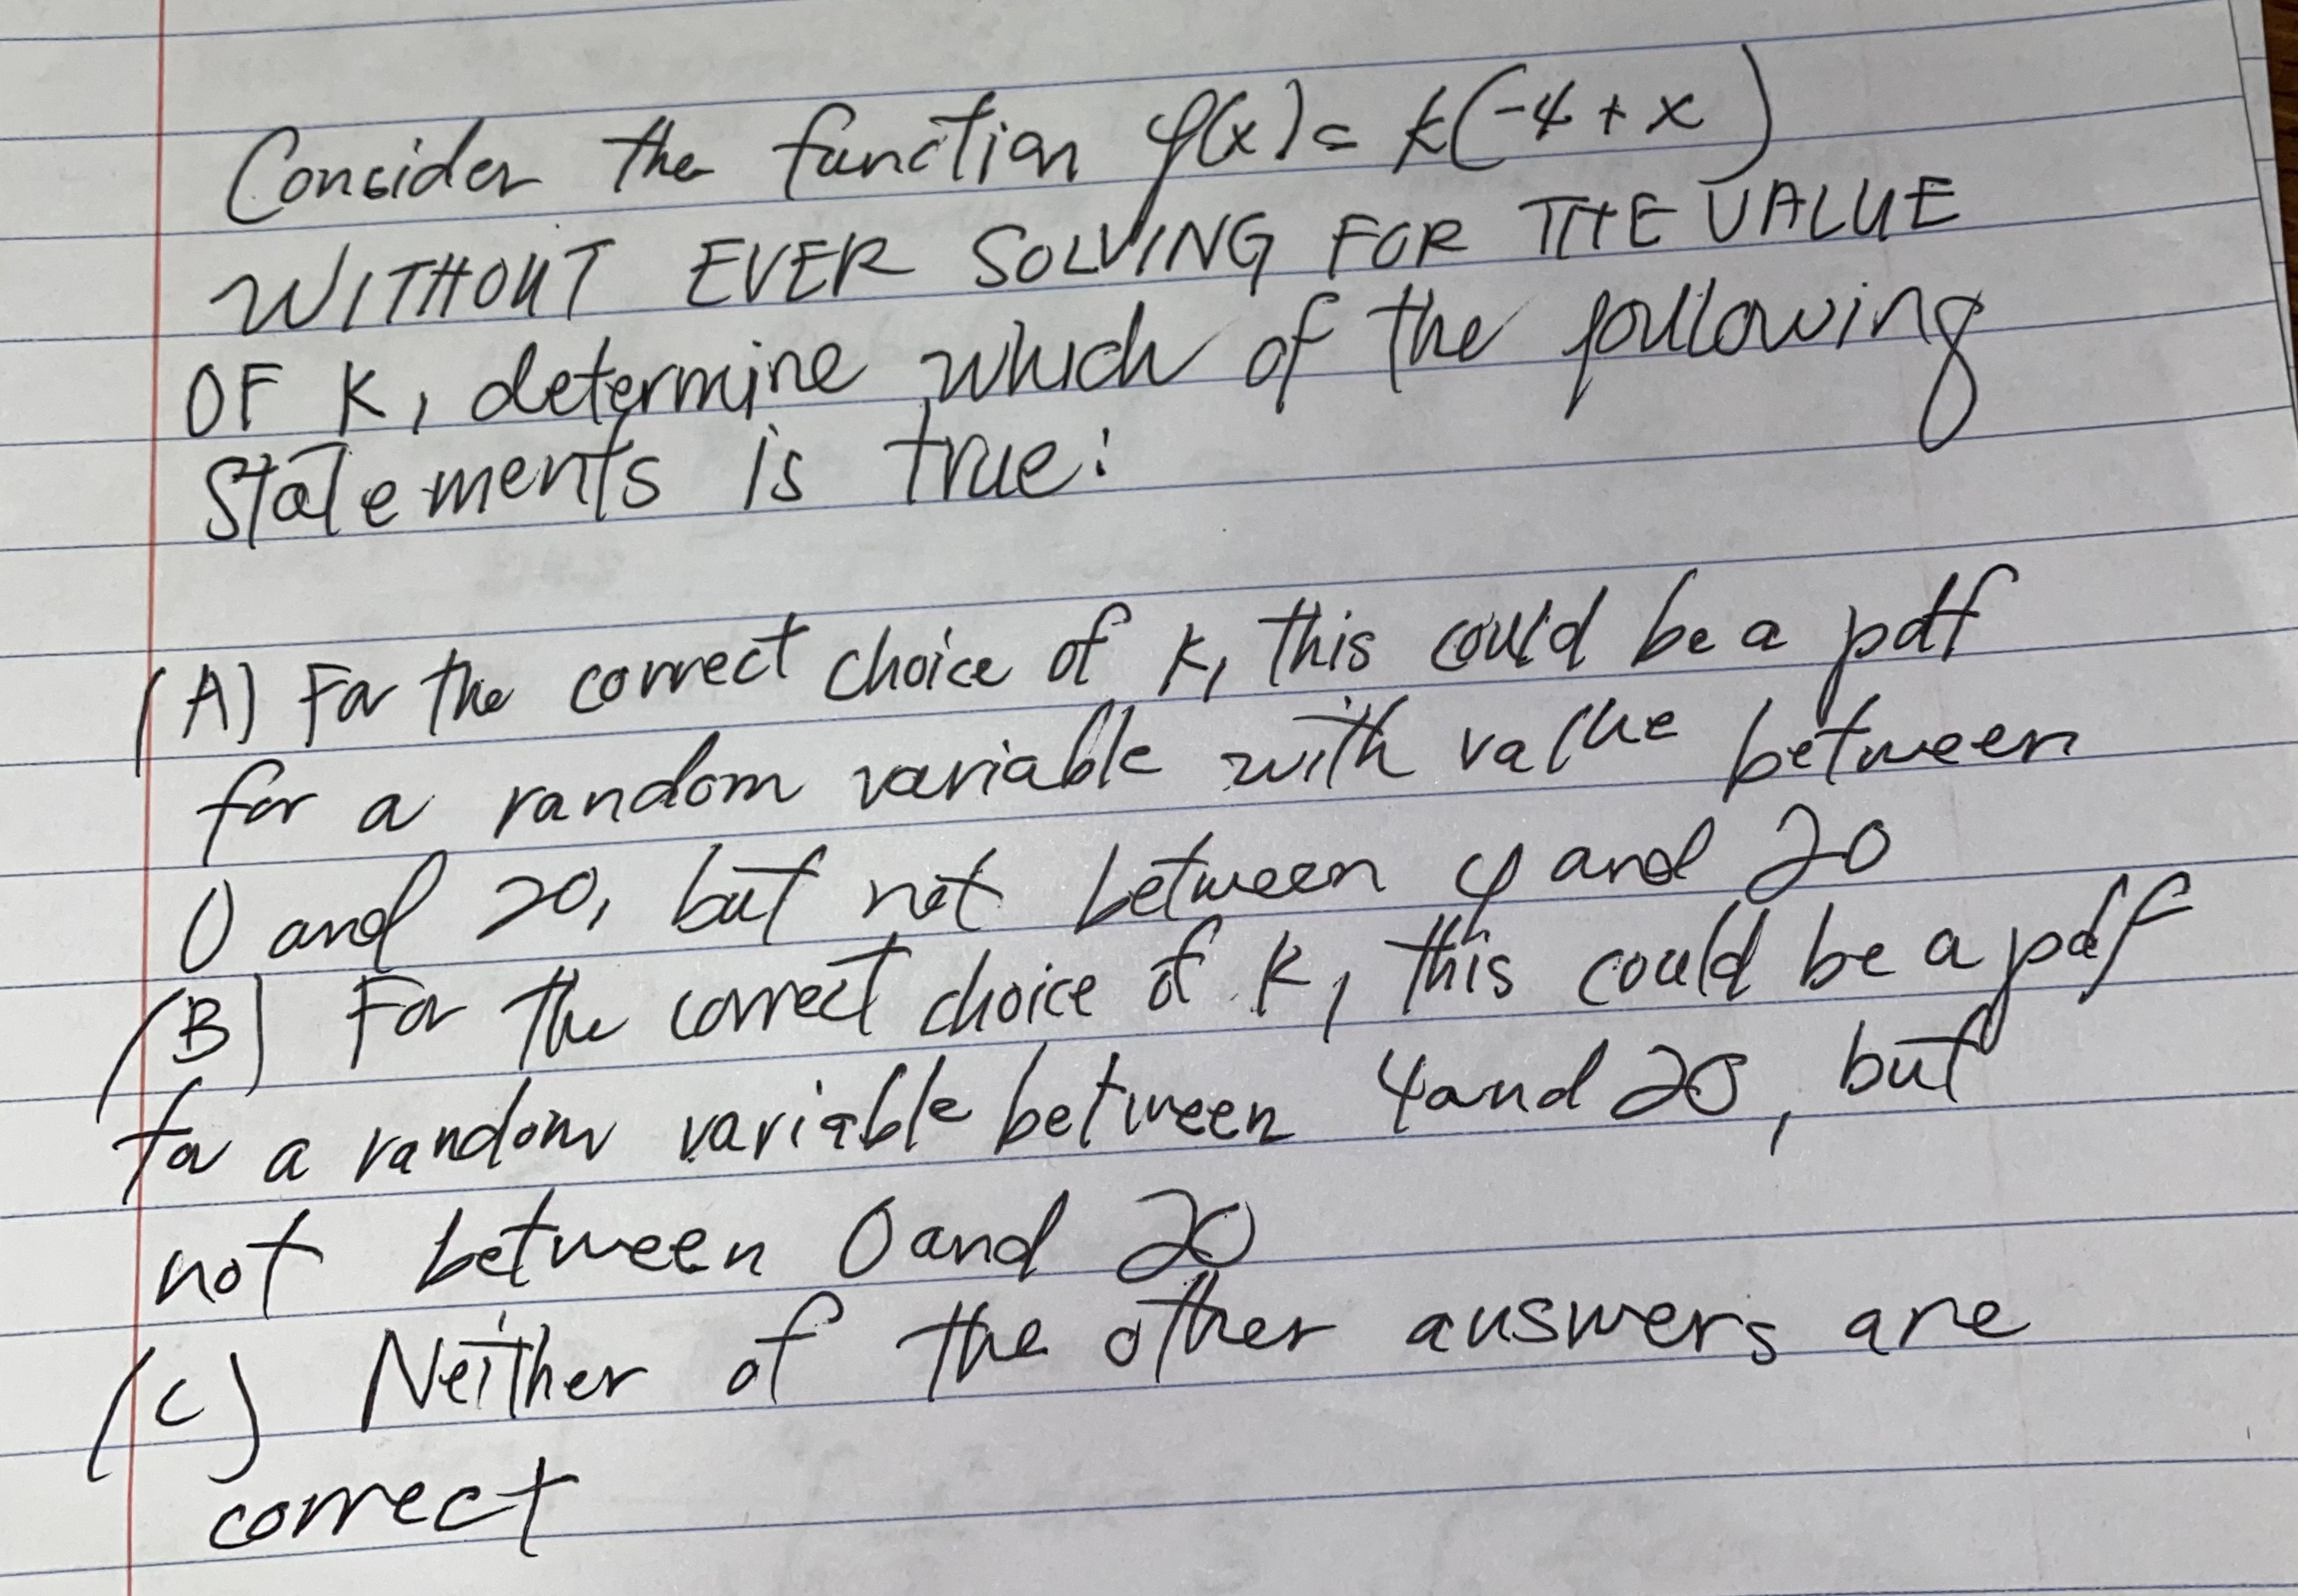 Consider the function f(x) = k(-4 + x)
WITHOUT EVER SOLVING FOR THE VALUE
OF K, determine which of the following
statements is true:
(A) For the correct choice of k, this could be a pdf
for a random variable with value between
0 and 20, but not between 4 and 20
(B) For the correct choice of k, this could be a pdf
for a random variable between 4 and 20, but
not between 0 and 20
(C) Neither of the other answers are
correct